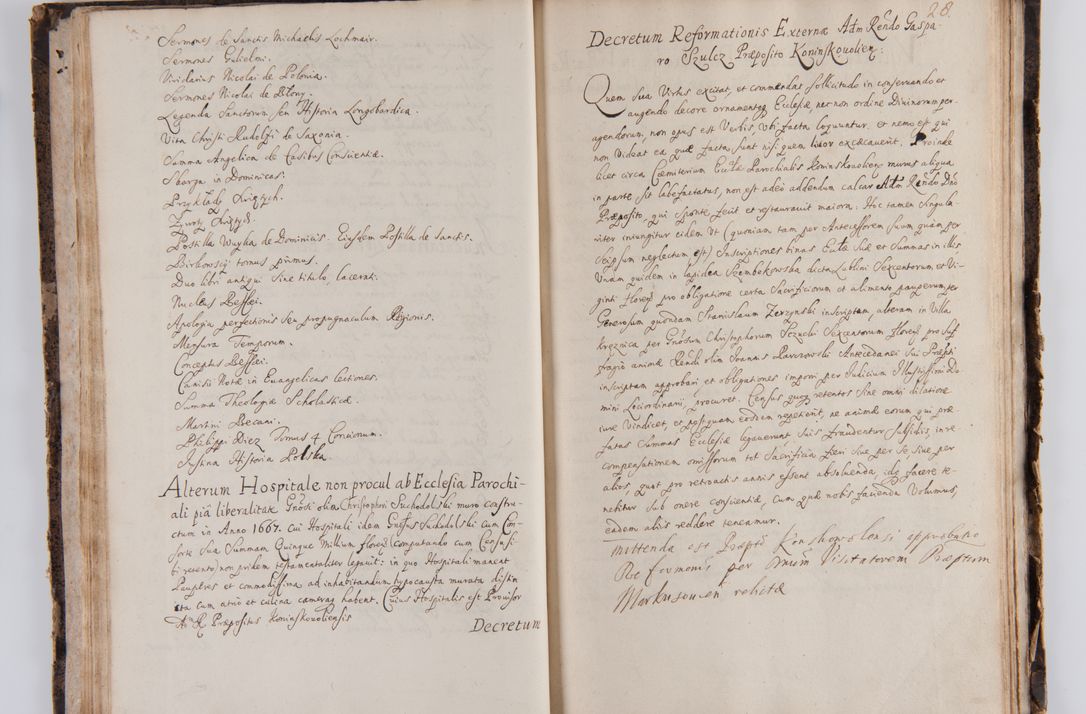 Sermones de Sanctis Michaelis Lochmair.
Sermones Gulielmi.
Viridarius Nicolai de Polonia.
Sermones Nicolai de Bilony.
Legenda Sanctorum seu Historia Longobardica.
Vita Christi Rudolfi de Saxonia.
Summa Angelica de Casibus Conscientiæ.
Skarga in Dominicas.
Przykłady Xiążych.
Żywoty
Postilla Wuyka de Dominicis. Eiusdem Postilla de Sanctis.
Birkowscÿ tomus primus.
Duo libri antiqui sine titulo, lacerati.
Nucleus BesSei.
Apologia perfectionis seu propugnaculum Religionis.
Mensura Temporum.
Conceptus Bessei.
Canisii Notæ in Euangelicas lectiones.
Summa Theologiæ Scholasticæ.
Martini Becani.
Philippi Diez Tomus 4 Concionum.
Justina Historia Polska.
Alterum Hospitale non procul ab Ecclesia Parochi-
ali piâ liberalitate Gnôsi olim Christophori Suchodolski muro constru-
ctum in Anno 1667. cui Hospitali idem Gnêsus Suchodolski cum Con-
sorte sua Summam Quinque Millium florens computando cum Censu
retento non pridem testamentaliter legavit: in quo Hospitali maneat
Pauperes et commodissima ad inhabitandum hypocausta murata distin
cta cum atrio et culina cameras habent. Cuius Hospitalis est Provisor
Præpositus Koninskouoliensis
Decretum
28.
Decretum Reformationis Externæ Adm Rendo Gaspa-
ro Szulcz Præposito Koninskouolien:
Quem sua Virtus excitat, et commendat sollicitudo in conservando et
augendo decore ornamentoq Ecclesiæ, nec non ordine Divinorum per-
agendorum, non opus est Verbis, Vbi facta loquuntur, et nemo est qui
non Videat ea quæ facta sunt nisi quem livor excæcaverit. Proinde
licet circa Cæmiterium Eccłæ Parochialis Koninskouolien murus aliqua
in parte sit labefactatus, non est adeo addendum calcar Adm Rendo Dno
Præposito, qui sponte fecit et restauravit maiora: Hoc tamen singula-
riter iniungitur eidem Vt (quoniam tam per Antecessorem suum quam per
seipsum neglectum est) Inscriptiones binas Eccłæ suæ et Summas in illis
Vnam quidem in lapidea Szembekowska dicta Lublini Sexcentorum et Vi-
ginti florens pro obligatione certa Sacrificiorum et alimento pauperum per
Generosum quondam Stanislaum Zerzynski inscriptam, alteram in Villa
Krężnica per Gnôsum Christophorum Sexcentorum florens pro suf
fragio animæ Rendi olim Joannis Parczowski Antecedanei sui Præpti
inscriptam approbari et obligationes imponi per Judicium Illustrissimi Do-
mini Lociordinarii, procuret. Census quoq retentos sine omni dilatione
iure Vindicet, et postquam eosdem repetierit, ne animæ eorum qui præ-
fatas Summas Ecclesiæ legaverunt suis fraudentur subsidiis, in re
compensationem omissorum tot Sacrificia fieri sive per se, sive per
alios, quot pro retroactis annis essent absoluenda, idq facere te-
nebitur sub onere conscientiæ, Cum quæ nobis facienda Volumus,
eadem aliis reddere teneamur.
mittenda est Præpto Konskowolensi approbatio
Ref formonis per Dnum Visitatorem Præptum
Markusouien relicta